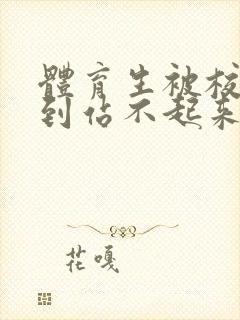 體育生被校
到佔不起來
花嘎